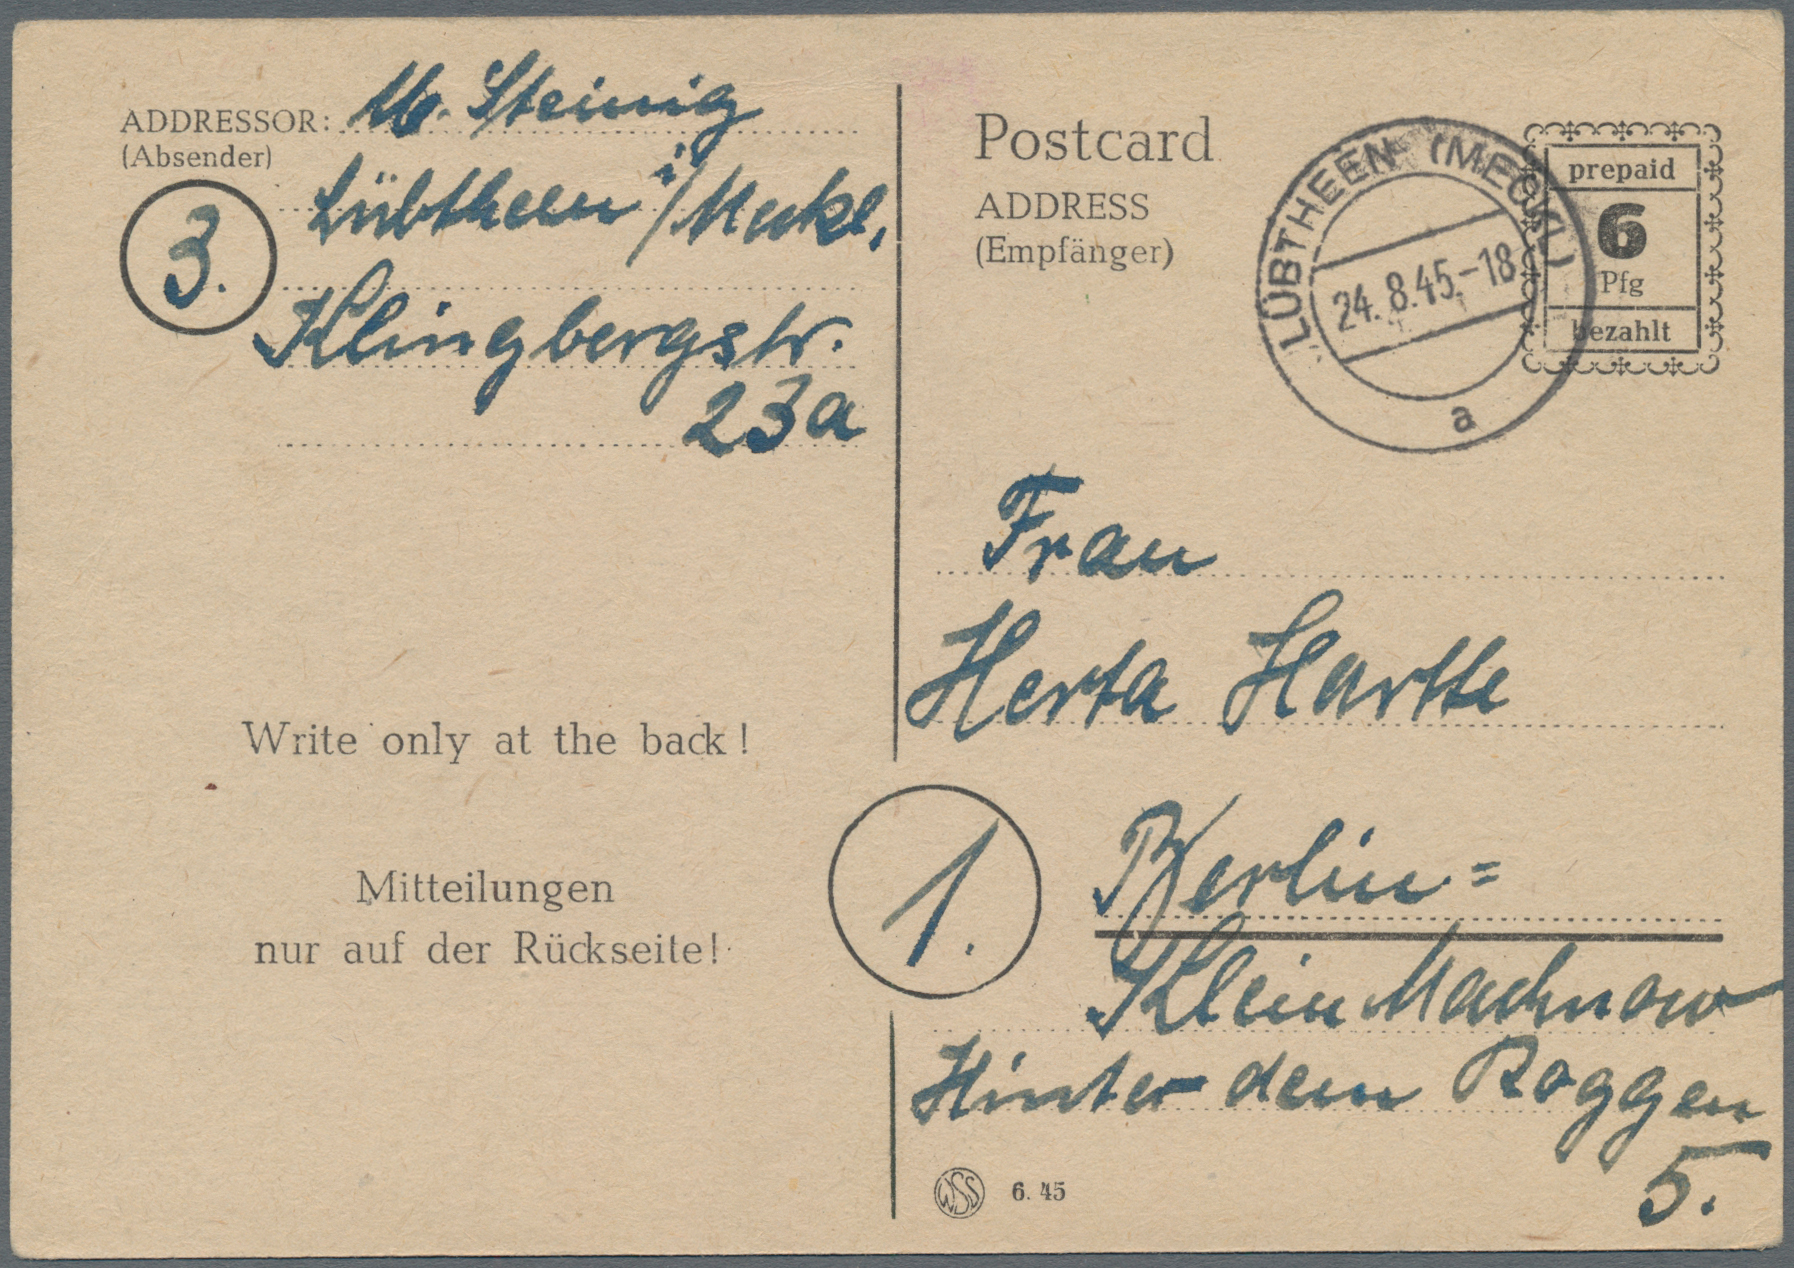 ADDRESSOR: M. Steinig
(Absender)
Lübtheen i/Meckl.
3.
Klingbergstr.
23a
Write only at the back!
Mitteilungen
nur auf der Rückseite!
Postcard
ADDRESS
(Empfänger)
LÜBTHEEN (MECKL)
24.8.45.-18
a
prepaid
6
Pfg
bezahlt
Frau
Herta Hartte
1.
Berlin=
Klein Machnow
Hinter dem Roggen
5.
WSS 6. 45